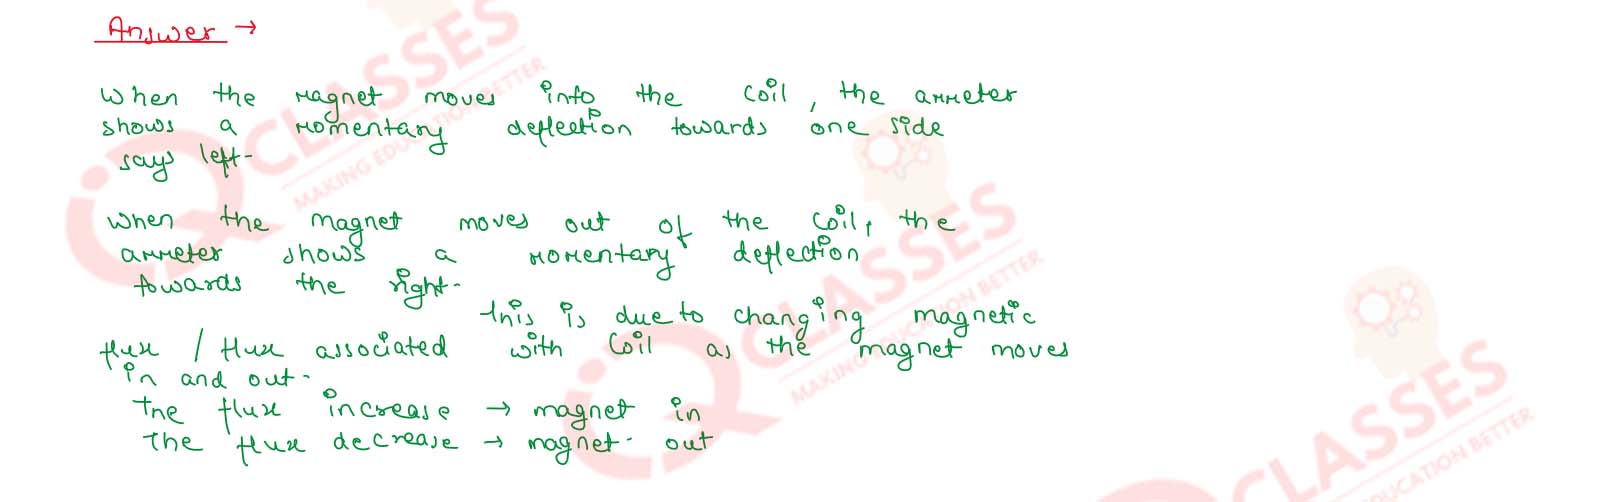 Answer →
When the magnet moves into the coil, the ammeter
shows a momentary deflection towards one side
says left.
When the magnet moves out of the coil, the
ammeter shows a momentary deflection
towards the right.
This is due to changing magnetic
flux / flux associated with Coil as the magnet moves
in and out.
The flux increase → magnet in
The flux decrease → magnet out
iQ CLASSES
MAKING EDUCATION BETTER
iQ CLASSES
MAKING EDUCATION BETTER
CLASSES
EDUCATION BETTER